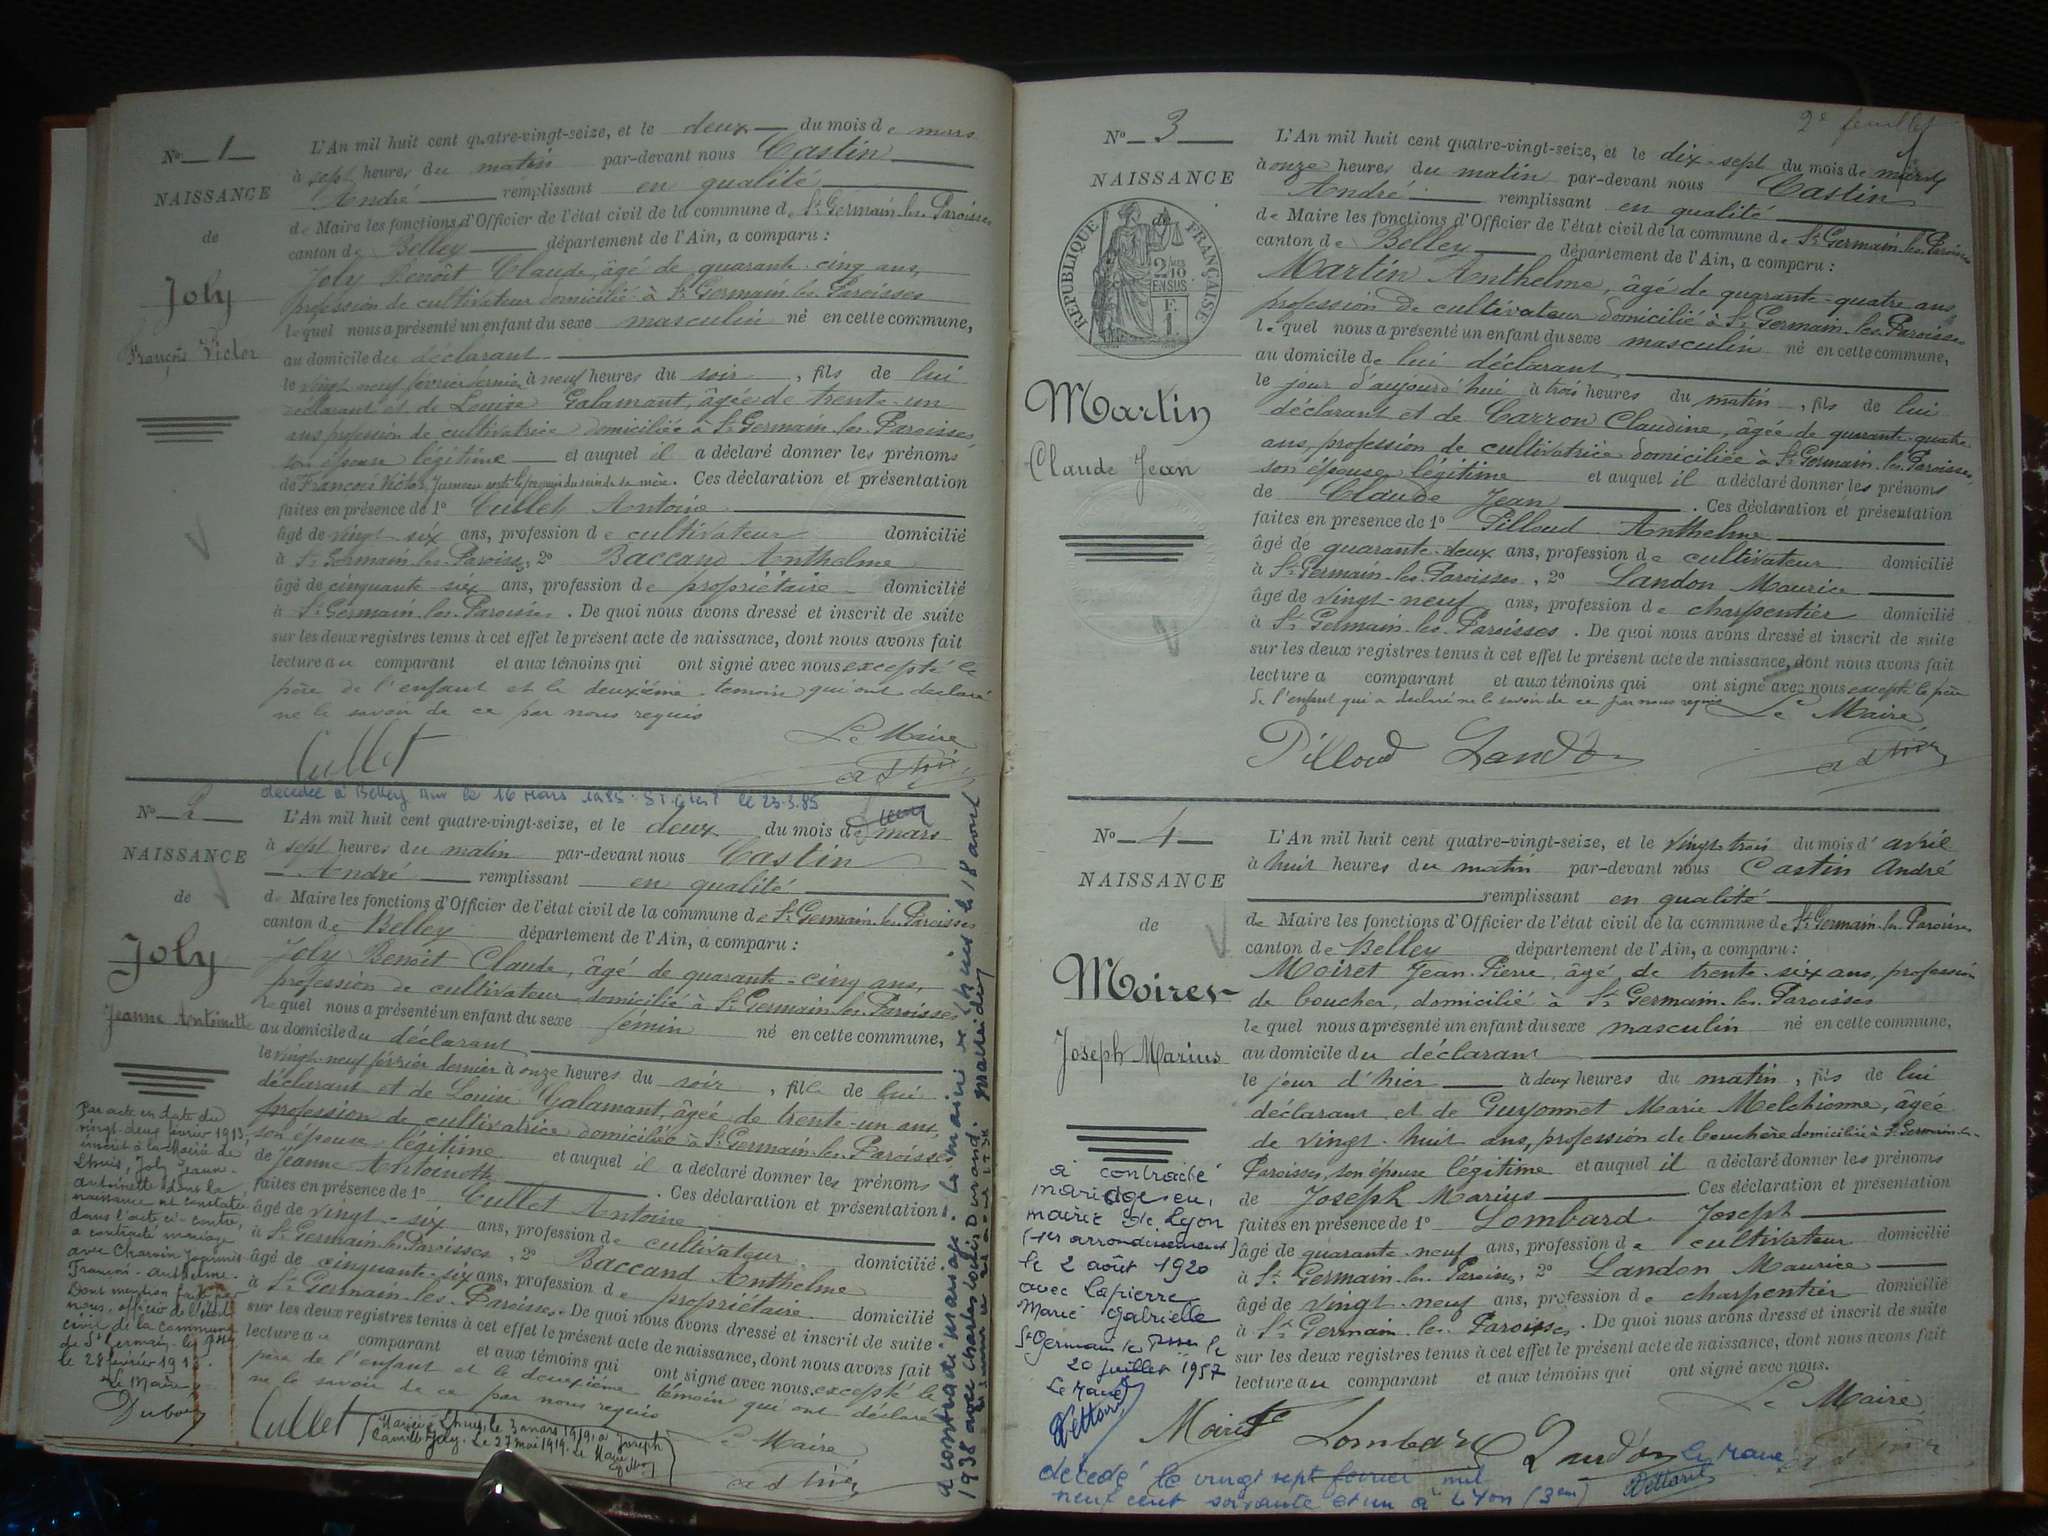 N° 1
NAISSANCE
de
Joly
François Victor
L'An mil huit cent quatre-vingt-seize, et le deux du mois de mars
à sept heures du matin par-devant nous Castin
André remplissant en qualité
de Maire les fonctions d'Officier de l'état civil de la commune de St Germain-les-Paroisses
canton de Belley département de l'Ain, a comparu :
Joly Benoît Claude, âgé de quarante-cinq ans,
profession de cultivateur domicilié à St Germain-les-Paroisses
lequel nous a présenté un enfant du sexe masculin né en cette commune,
au domicile du déclarant
le vingt neuf février dernier à neuf heures du soir, fils de lui
déclarant et de Louise Galamant, âgée de trente-un
ans, profession de cultivatrice domiciliée à St Germain-les-Paroisses,
son épouse légitime et auquel il a déclaré donner les prénoms
de François Victor, Jumeau sorti le premier du sein de sa mère. Ces déclaration et présentation
faites en présence de 1° Cullet Antoine
âgé de vingt-six ans, profession de cultivateur domicilié
à St Germain-les-Paroisses, 2° Baccand Anthelme
âgé de cinquante-six ans, profession de propriétaire domicilié
à St Germain-les-Paroisses. De quoi nous avons dressé et inscrit de suite
sur les deux registres tenus à cet effet le présent acte de naissance, dont nous avons fait
lecture au comparant et aux témoins qui ont signé avec nous excepté le
père de l'enfant et le deuxième témoin qui ont déclaré
ne le savoir de ce par nous requis
Le Maire
Cullet
décédée à Belley Ain le 16 mars 1985 le 23.3.85
N° 2
NAISSANCE
de
Joly
Jeanne Antoinette
L'An mil huit cent quatre-vingt-seize, et le deux du mois de mars
à sept heures du matin par-devant nous Castin
André remplissant en qualité
de Maire les fonctions d'Officier de l'état civil de la commune de St Germain-les-Paroisses
canton de Belley département de l'Ain, a comparu :
Joly Benoît Claude, âgé de quarante-cinq ans,
profession de cultivateur domicilié à St Germain-les-Paroisses
lequel nous a présenté un enfant du sexe fémin né en cette commune,
au domicile du déclarant
le vingt-neuf février dernier à onze heures du soir, fille de lui
déclarant et de Louise Galamant, âgée de trente-un ans,
profession de cultivatrice domiciliée à St Germain-les-Paroisses
son épouse légitime et auquel il a déclaré donner les prénoms
de Jeanne Antoinette. Ces déclaration et présentation
faites en présence de 1° Cullet Antoine
âgé de vingt-six ans, profession de cultivateur domicilié
à St Germain-les-Paroisses, 2° Baccand Anthelme
âgé de cinquante-six ans, profession de propriétaire domicilié
à St Germain-les-Paroisses. De quoi nous avons dressé et inscrit de suite
sur les deux registres tenus à cet effet le présent acte de naissance, dont nous avons fait
lecture au comparant et aux témoins qui ont signé avec nous, excepté le
père de l'enfant et le deuxième témoin qui ont déclaré
ne le savoir de ce par nous requis
Le Maire
Cullet
Par acte en date du
vingt-deux février 1913,
inscrit à la Mairie de
Lhuis, Joly Jeanne
Antoinette dont la
naissance est constatée
dans l'acte ci-contre,
a contracté mariage
avec Charvin
François-Anthelme.
Dont mention faite par
nous, officier de l'état
civil de la commune
de St Germain-les-Plles
le 28 février 1913.
Le Maire
Dubois
Mariée à Lhuis, le 3 mars 1919, à Joseph
Camille Joly. Le 27 mai 1919. Le Maire
a contracté mariage à la mairie de Lhuis le 18 août
1938 avec Charles Louis Durand.
2e feuillet
N° 3
NAISSANCE
de
RÉPUBLIQUE FRANÇAISE
2/10 EN SUS
F. 1.
Martin
Claude Jean
L'An mil huit cent quatre-vingt-seize, et le dix-sept du mois de mars
à onze heures du matin par-devant nous Castin
André remplissant en qualité
de Maire les fonctions d'Officier de l'état civil de la commune de St Germain-les-Paroisses
canton de Belley département de l'Ain, a comparu :
Martin Anthelme, âgé de quarante-quatre ans,
profession de cultivateur domicilié à St Germain-les-Paroisses
lequel nous a présenté un enfant du sexe masculin né en cette commune,
au domicile de lui déclarant
le jour d'aujourd'hui à trois heures du matin, fils de lui
déclarant et de Carron Claudine, âgée de quarante-quatre
ans, profession de cultivatrice domiciliée à St Germain-les-Paroisses,
son épouse légitime et auquel il a déclaré donner les prénoms
de Claude Jean. Ces déclaration et présentation
faites en présence de 1° Pilloud Anthelme
âgé de quarante-deux ans, profession de cultivateur domicilié
à St Germain-les-Paroisses, 2° Landon Maurice
âgé de vingt-neuf ans, profession de charpentier domicilié
à St Germain-les-Paroisses. De quoi nous avons dressé et inscrit de suite
sur les deux registres tenus à cet effet le présent acte de naissance, dont nous avons fait
lecture a comparant et aux témoins qui ont signé avec nous excepté le père
de l'enfant qui a déclaré ne le savoir de ce par nous requis
Le Maire
Pilloud Landon
N° 4
NAISSANCE
de
Moiret
Joseph Marius
L'An mil huit cent quatre-vingt-seize, et le vingt-trois du mois d'avril
à huit heures du matin par-devant nous Castin André
remplissant en qualité
de Maire les fonctions d'Officier de l'état civil de la commune de St Germain-les-Paroisses
canton de Belley département de l'Ain, a comparu :
Moiret Jean-Pierre, âgé de trente-six ans, profession
de boucher, domicilié à St Germain-les-Paroisses
lequel nous a présenté un enfant du sexe masculin né en cette commune,
au domicile du déclarant
le jour d'hier à deux heures du matin, fils de lui
déclarant et de Guyonnet Marie Melchionne, âgée
de vingt-huit ans, profession de bouchère domiciliée à St Germain-les-
Paroisses, son épouse légitime et auquel il a déclaré donner les prénoms
de Joseph Marius Ces déclaration et présentation
faites en présence de 1° Lombard Joseph
âgé de quarante-neuf ans, profession de cultivateur domicilié
à St Germain-les-Paroisses, 2° Landon Maurice
âgé de vingt-neuf ans, profession de charpentier domicilié
à St Germain-les-Paroisses. De quoi nous avons dressé et inscrit de suite
sur les deux registres tenus à cet effet le présent acte de naissance, dont nous avons fait
lecture au comparant et aux témoins qui ont signé avec nous.
Le Maire
Moiret Lombard Landon
a contracté
mariage en
mairie de Lyon
(1er arrondissement)
le 2 août 1920
avec Lapierre
Marie Gabrielle
St Germain les Psses le
20 juillet 1957
Le Maire
décédé le vingt sept février mil
neuf cent soixante et un à Lyon (3em)
Le Maire